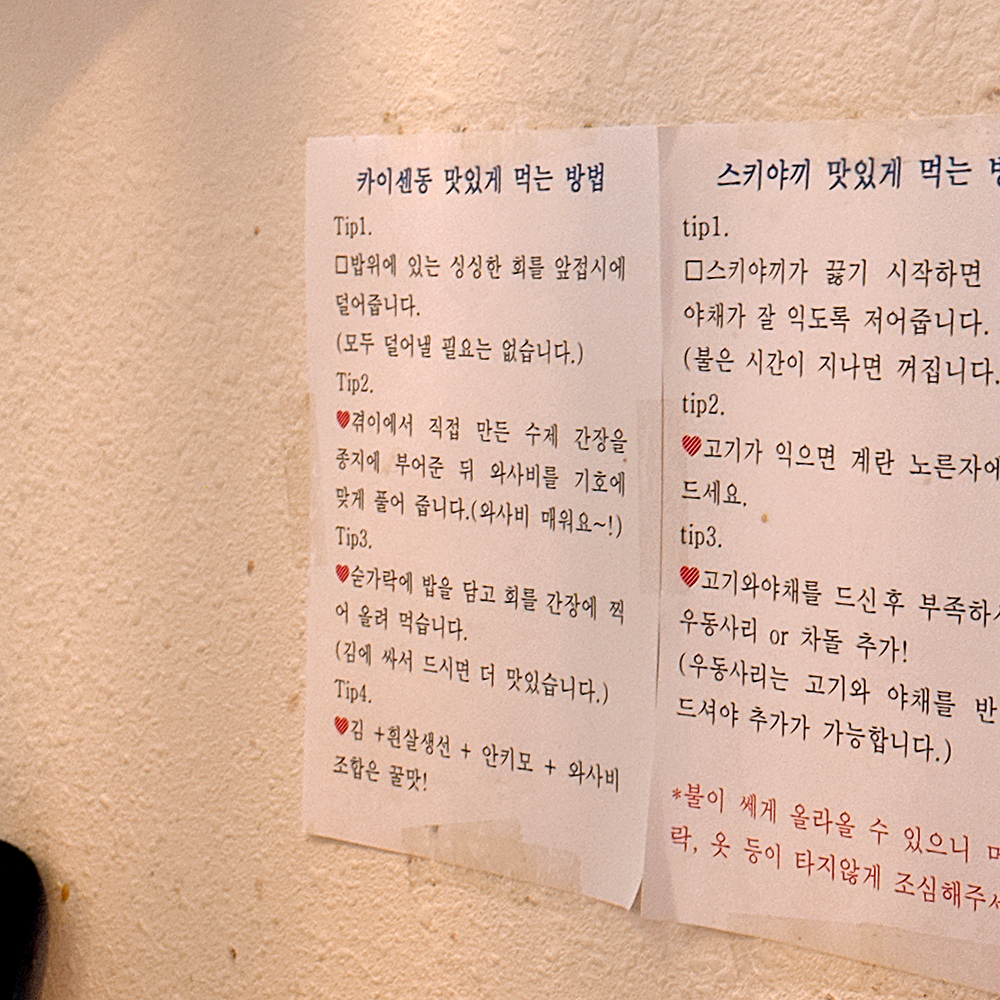 카이센동 맛있게 먹는 방법
Tip1.
□밥위에 있는 싱싱한 회를 앞접시에
덜어줍니다.
(모두 덜어낼 필요는 없습니다.)
Tip2.
♥겪이에서 직접 만든 수제 간장을
종지에 부어준 뒤 와사비를 기호에
맞게 풀어 줍니다.(와사비 매워요~!)
Tip3.
♥숟가락에 밥을 담고 회를 간장에 찍
어 올려 먹습니다.
(김에 싸서 드시면 더 맛있습니다.)
Tip4.
♥김 +흰살생선 + 안키모 + 와사비
조합은 꿀맛!
스키야끼 맛있게 먹는
tip1.
□스키야끼가 끓기 시작하면
야채가 잘 익도록 저어줍니다.
(불은 시간이 지나면 꺼집니다.
tip2.
♥고기가 익으면 계란 노른자에
드세요.
tip3.
♥고기와야채를 드신후 부족하
우동사리 or 차돌 추가!
(우동사리는 고기와 야채를 반
드셔야 추가가 가능합니다.)
*불이 쎄게 올라올 수 있으니
락, 옷 등이 타지않게 조심해주